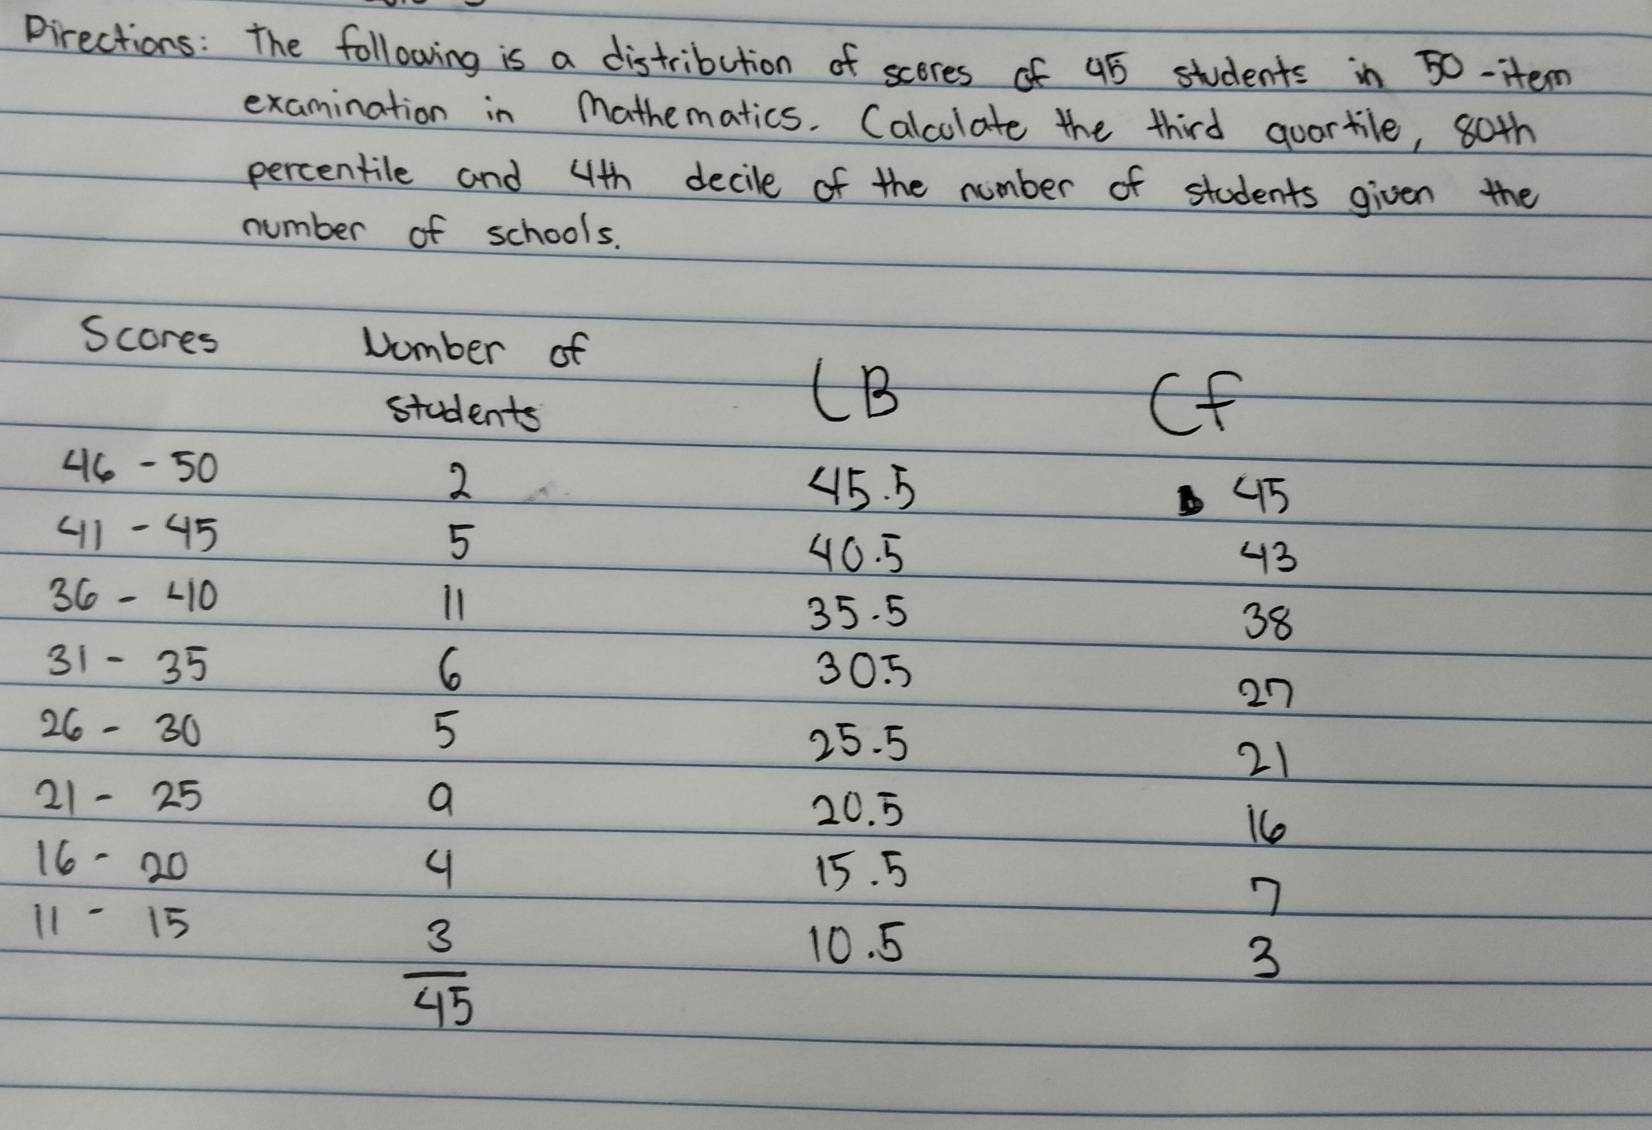 Directions: The following is a distribution of scores of 45 students in 50-item
examination in Mathematics. Calculate the third quartile, 80th
percentile and 4th decile of the number of students given the
number of schools.
Scores Number of
students LB Cf
46 - 50 2 45.5 45
41 - 45 5 40.5 43
36 - 40 11 35.5 38
31 - 35 6 30.5 27
26 - 30 5 25.5 21
21 - 25 9 20.5 16
16 - 20 4 15.5 7
11 - 15 3 10.5 3
45